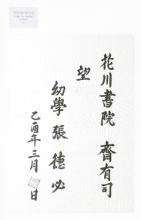 花川書院 齋有司
望
幼學 張德必
乙酉年三月 日